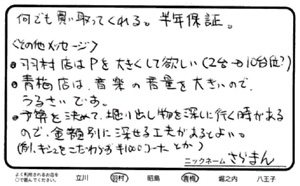 何でも買い取ってくれる。半年保証。
<その他メッセージ>
・羽村店はPを大きくして欲しい(2台→10台位?)
・青梅店は、音楽の音量を大きいので、
うるさいです。
・予算を決めて、堀り出し物を探しに行く時がある
ので、金額別に探せる工夫があるとよい。
(例.キジュをこだわらず¥1000コーナーとか)
ニックネーム さらまん
よく利用されるお店を
立川 羽村 昭島 青梅 堀之内 八王子